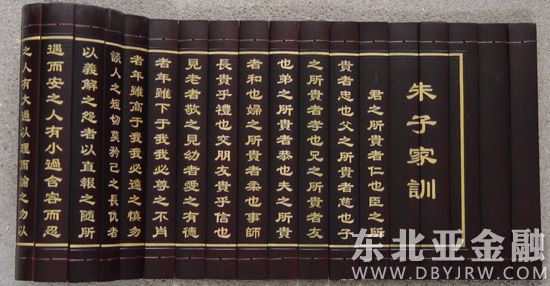 朱子家訓
君之所貴者仁也臣之所
貴者忠也父之所貴者慈也子
之所貴者孝也兄之所貴者友
也弟之所貴者恭也夫之所貴
者和也婦之所貴者柔也事師
長貴乎禮也交朋友貴乎信也
見老者敬之見幼者愛之有德
者年雖下于我我必尊之不肖
者年雖高于我我必遠之慎勿
談人之短切莫矜己之長仇者
以義解之怨者以直報之隨所
遇而安之人有小過含容而忍
之人有大過以理而諭之勿以
东北亚金融
WWW.DBYJRW.COM